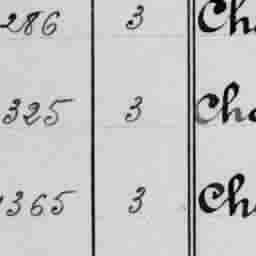 286 3 Ch
325 3 Cha
365 3 Cha